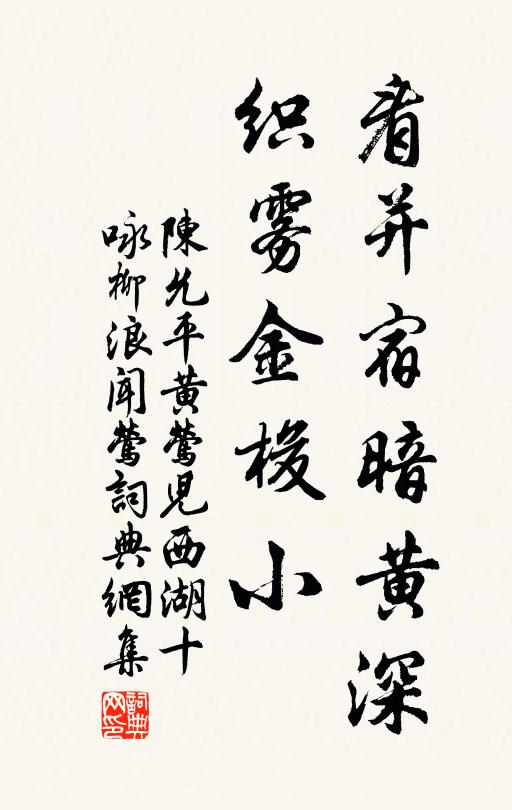 看并宿暗黄深
织雾金梭小
陳允平黄鶯児西湖十
咏柳浪闻鶯詞典網集
詞典网印